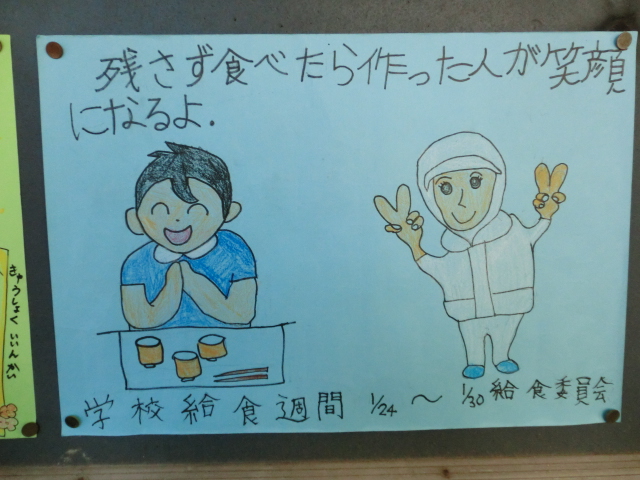 残さず食べたら作った人が笑顔
になるよ.
学校給食週間 1/24 〜 1/30 給食委員会
きゅうしょくいいんかい